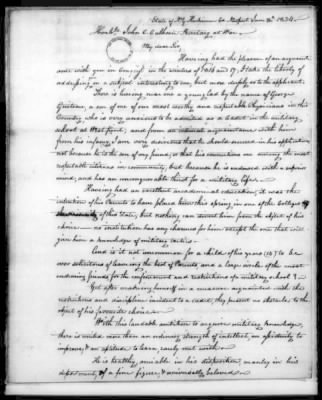 State of N.Y. Herkimer Co.
Honble. John C. Calhoun Secretary at War.
My dear Sir,
Having had the pleasure of an acquaint-
ance with you in Congress in the winters of 1816 and 17, I take the liberty of
addressing on a subject interesting to me, but more deeply so to the applicant.
There is living near me a young lad by the name of George
, a son of one of our most worthy and respectable Physicians in this
Country, who is very anxious to be admitted as a Cadet in the military
school at West point, and from an intimate acquaintance with him
from his infancy, I am very desirous that he should succeed in his application
not because he is the son of my friend, or that his connections are among the most
respectable citizens in community, but because he is endowed with a superior
mind, and has an unconquerable thirst for a military life.
Having had an excellent academical education, it was the
intention of his Parents to have placed him this spring in one of the Colleges
of this State, but nothing can divert him from the object of his
choice — no institution has any charms for him except the one that will
give him a knowledge of military tactics —
And is it not uncommon for a child of his years (17) to be
over solicitous of leaving the best of Parents and a large circle of the most
endearing friends for the confinement and restrictions of a military school?
Yet after making himself in a measure acquainted with the
restrictions and discipline incident to a cadet, they present no obstacle to the
object of his favourite choice —
With this laudable ambition to acquire military knowledge,
there is united more than an ordinary strength of intellect, an aptitude to
improve, & an aptitude to learn, rarely met with —
He is healthy, amiable in his disposition, manly in his
deportment, of a fine figure, & universally beloved —